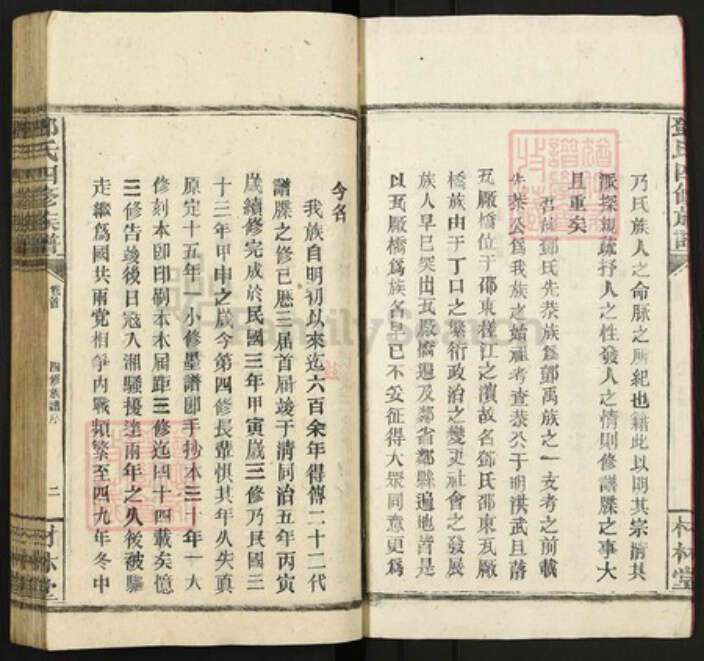 乃氏族人之命脉之所紀也籍此以明其宗清其
派探親疏抒人之性發人之情則修譜牒之事大
且重矣
吾修鄧氏先恭族爲鄧禹族之一支考之前載
先恭公爲我族之始祖考查恭公于明洪武且落
瓦厰橋位于邵東檡江之濱故名鄧氏邵東瓦厰
橋族由于丁口之繁衍政治之變更社會之發展
族人早已突出瓦厰橋遍及鄰省鄰縣遍地皆是
以瓦厰橋爲族名早已不妥征得大眾同意更爲
鄧氏四修族譜
材林堂
今名
我族自明初以來迄六百余年得傳二十二代
譜牒之修已歷三屆首屆竣于清同治五年丙寅
歲續修完成於民國三年甲寅歲三修乃民國三
十三年甲申之歲今第四修長輩惧其年久失真
原定十五年一小修墨譜即手抄本三十年一大
修刻本即印刷本本屆距三修迄四十四載矣憶
三修告竣後日寇入湘騷擾達兩年之久後被驅
走繼爲國共兩党相爭内戰頻繁至四九年冬中
鄧氏四修族譜
卷首
四修族譜序
二
材林堂
FamilySearch